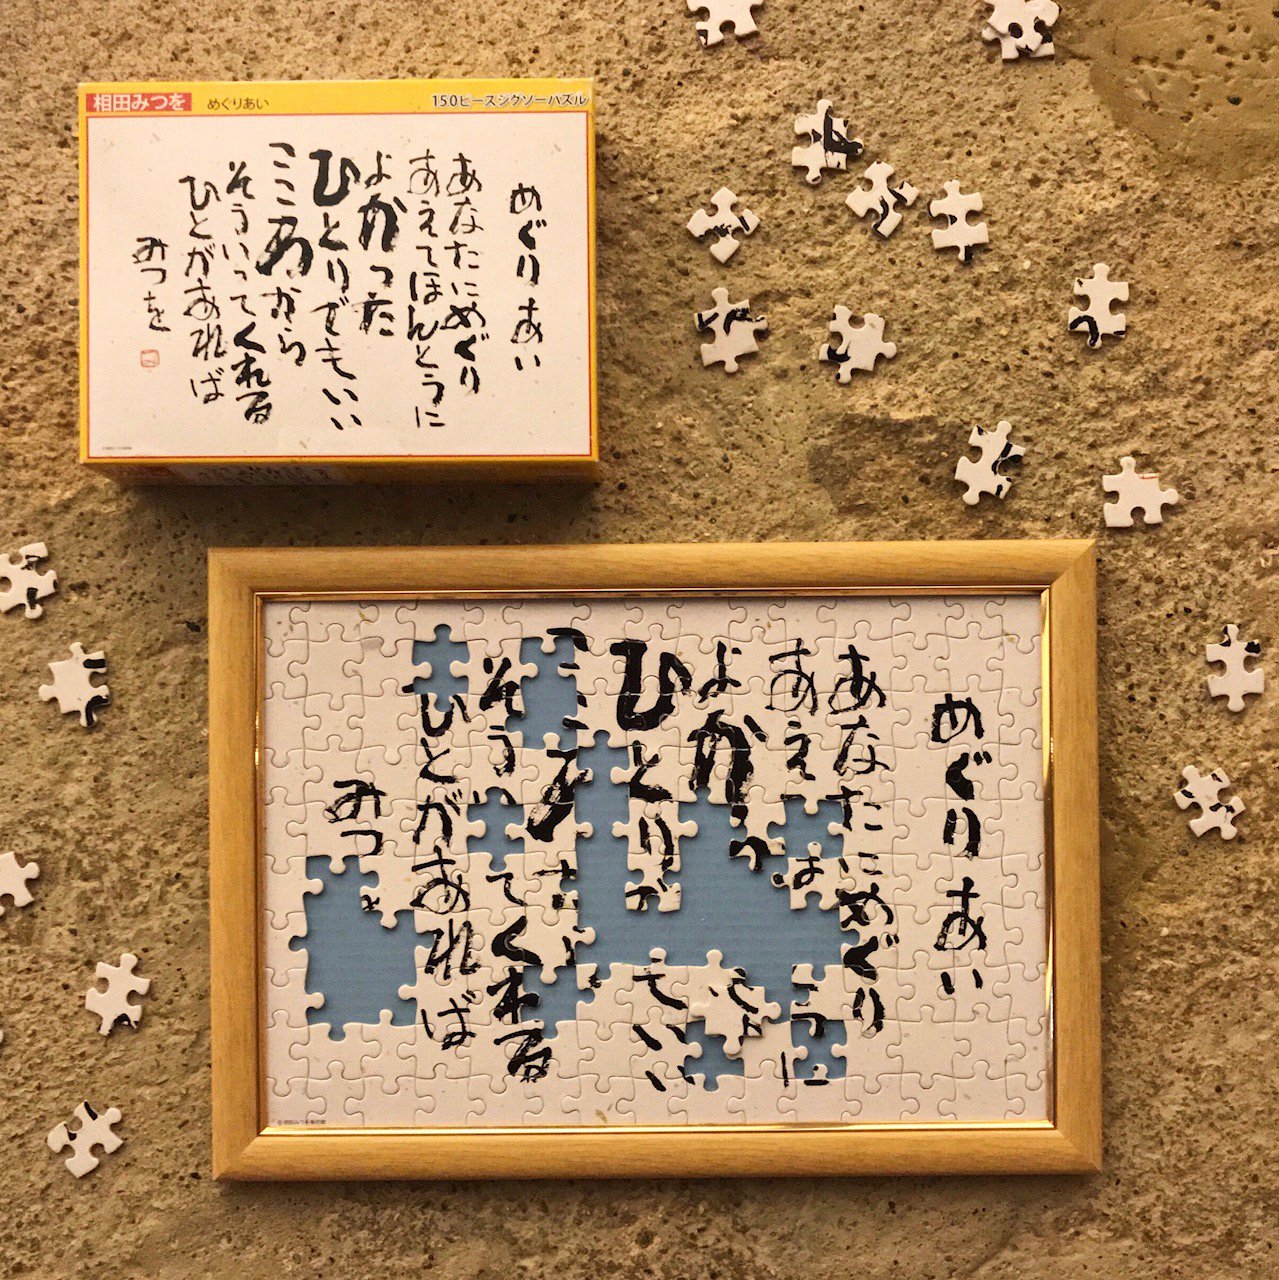 相田みつを めぐりあい 150ピースジグソーパズル
めぐりあい
あなたにめぐり
あえてほんとうに
よかった
ひとりでもいい
こころから
そういってくれる
ひとがあれば
みつを
めぐりあい
あなたにめぐり
あえ
よかっ
ひとりが
ていい
ここ
そう
てくれる
ひとがあれば
みつ